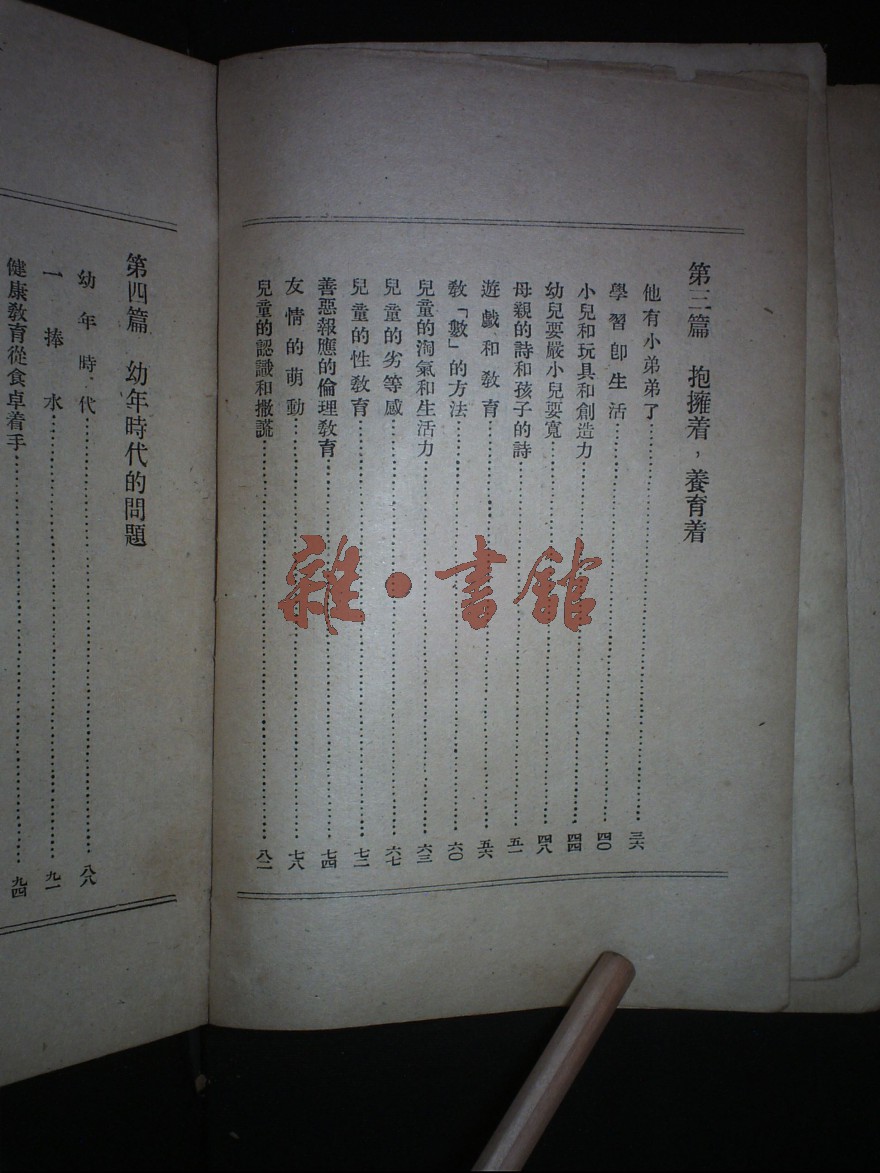 第三篇 抱擁着，養育着
他有小弟弟了 三六
學習卽生活 四〇
小兒和玩具和創造力 四四
幼兒要嚴小兒要寬 四八
母親的詩和孩子的詩 五一
遊戲和敎育 五六
敎「數」的方法 六〇
兒童的淘氣和生活力 六三
兒童的劣等感 六七
兒童的性敎育 七二
善惡報應的倫理敎育 七四
友情的萌動 七八
兒童的認識和撒謊 八二
第四篇 幼年時代的問題
幼年時代 八八
一捧水 九一
健康敎育從食卓着手 九四
雜·書館